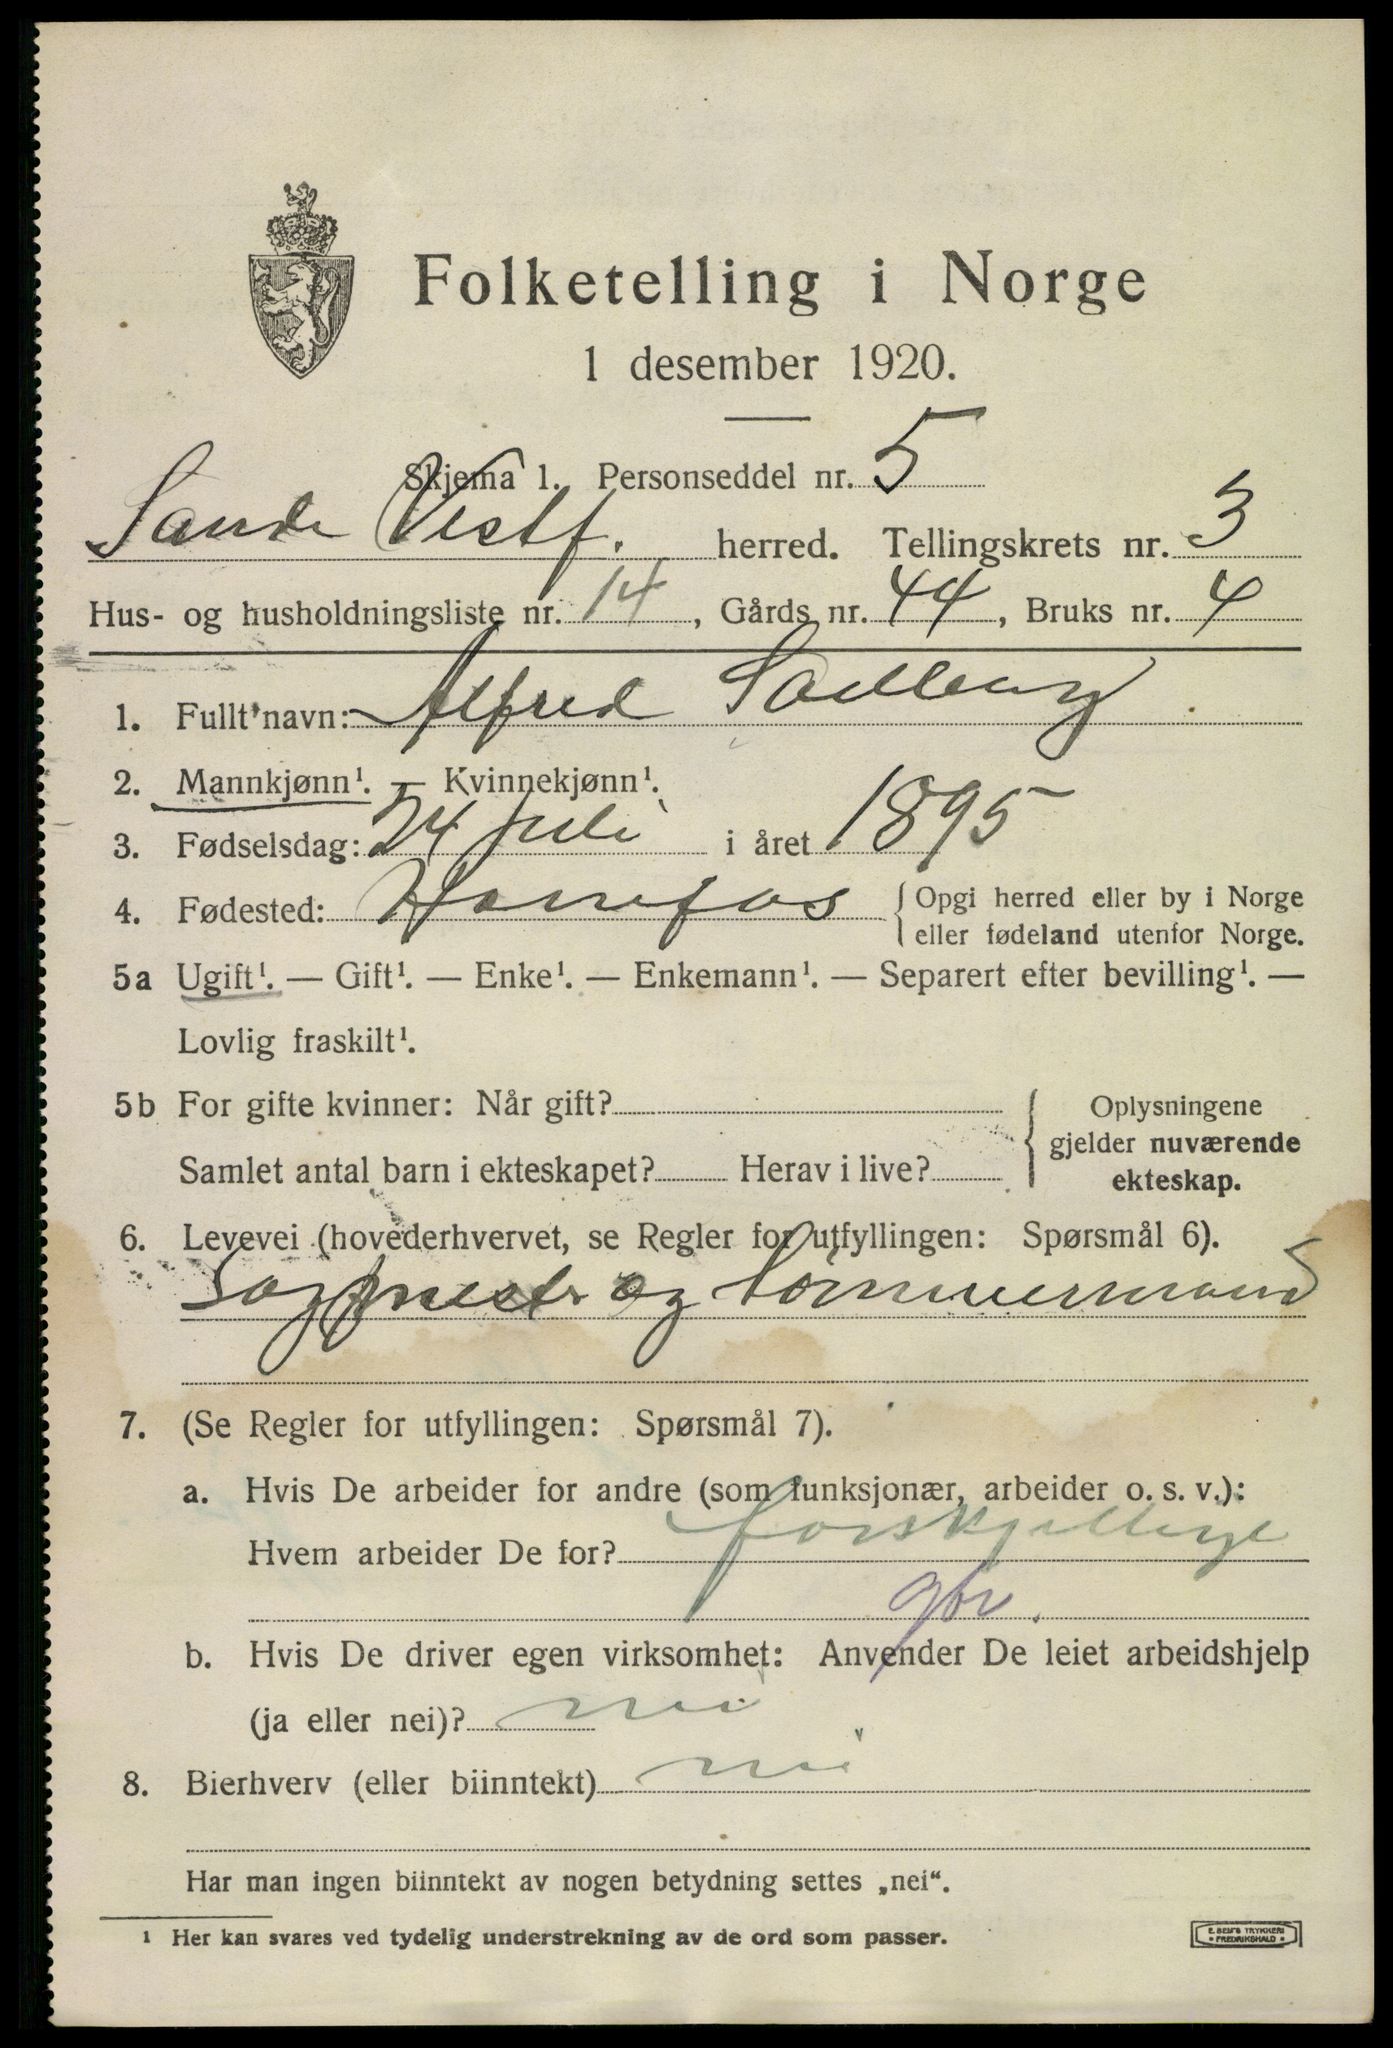 Folketelling i Norge
1 desember 1920.
Skjema 1. Personseddel nr. 5
Sande Vestf. herred. Tellingskrets nr. 3
Hus- og husholdningsliste nr. 14, Gårds nr. 44, Bruks nr. 4
1. Fullt navn: Alfred Solberg
2. Mannkjønn¹. — Kvinnekjønn¹.
3. Fødselsdag: 24 juli i året 1895
4. Fødested: Hønefos { Opgi herred eller by i Norge
eller fødeland utenfor Norge.
5a Ugift¹. — Gift¹. — Enke¹. — Enkemann¹. — Separert efter bevilling¹. —
Lovlig fraskilt¹.
5b For gifte kvinner: Når gift? { Oplysningene
gjelder nuværende
Samlet antal barn i ekteskapet? Herav i live? ekteskap.
6. Levevei (hovederhvervet, se Regler for utfyllingen: Spørsmål 6).
og Tömmermand
7. (Se Regler for utfyllingen: Spørsmål 7).
a. Hvis De arbeider for andre (som funksjonær, arbeider o. s. v.):
Hvem arbeider De for? forskjellige
gbr.
b. Hvis De driver egen virksomhet: Anvender De leiet arbeidshjelp
(ja eller nei)? nei
8. Bierhverv (eller biinntekt) nei
Har man ingen biinntekt av nogen betydning settes „nei“.
¹ Her kan svares ved tydelig understrekning av de ord som passer.
E. SEM'S TRYKKERI
• FREDRIKSHALD •